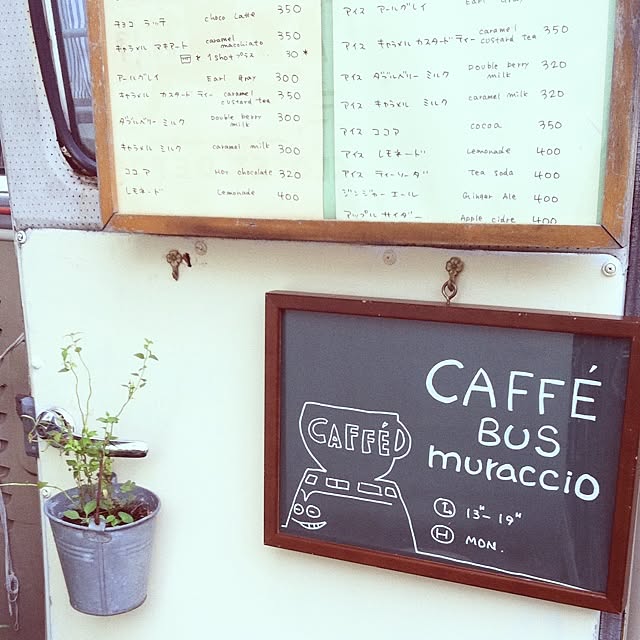 チョコ ラッテ choco Latte 350
キャラメル マキアート caramel macchiato 350
1 shot プラス 30 *
アールグレイ Earl Gray 300
キャラメル カスタード ティー caramel custard tea 350
ダブルベリー ミルク Double berry milk 300
キャラメル ミルク caramel milk 300
ココア Hot chocolate 320
レモネード Lemonade 400
アイス アールグレイ Earl Gray
アイス キャラメル カスタード ティー caramel custard tea 350
アイス ダブルベリー ミルク Double berry milk 320
アイス キャラメル ミルク caramel milk 320
アイス ココア cocoa 350
アイス レモネード Lemonade 400
アイス ティーソーダ Tea soda 400
ジンジャーエール Ginger Ale 400
アップルサイダー Apple cidre 400
CAFFÉ
BUS
muraccio
CAFFÉ
13H-19H
H MON.